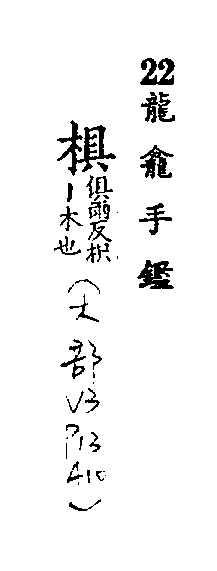 22龍龕手鑑
椇俱雨反枳
丨木也
(木部V3P13A10)